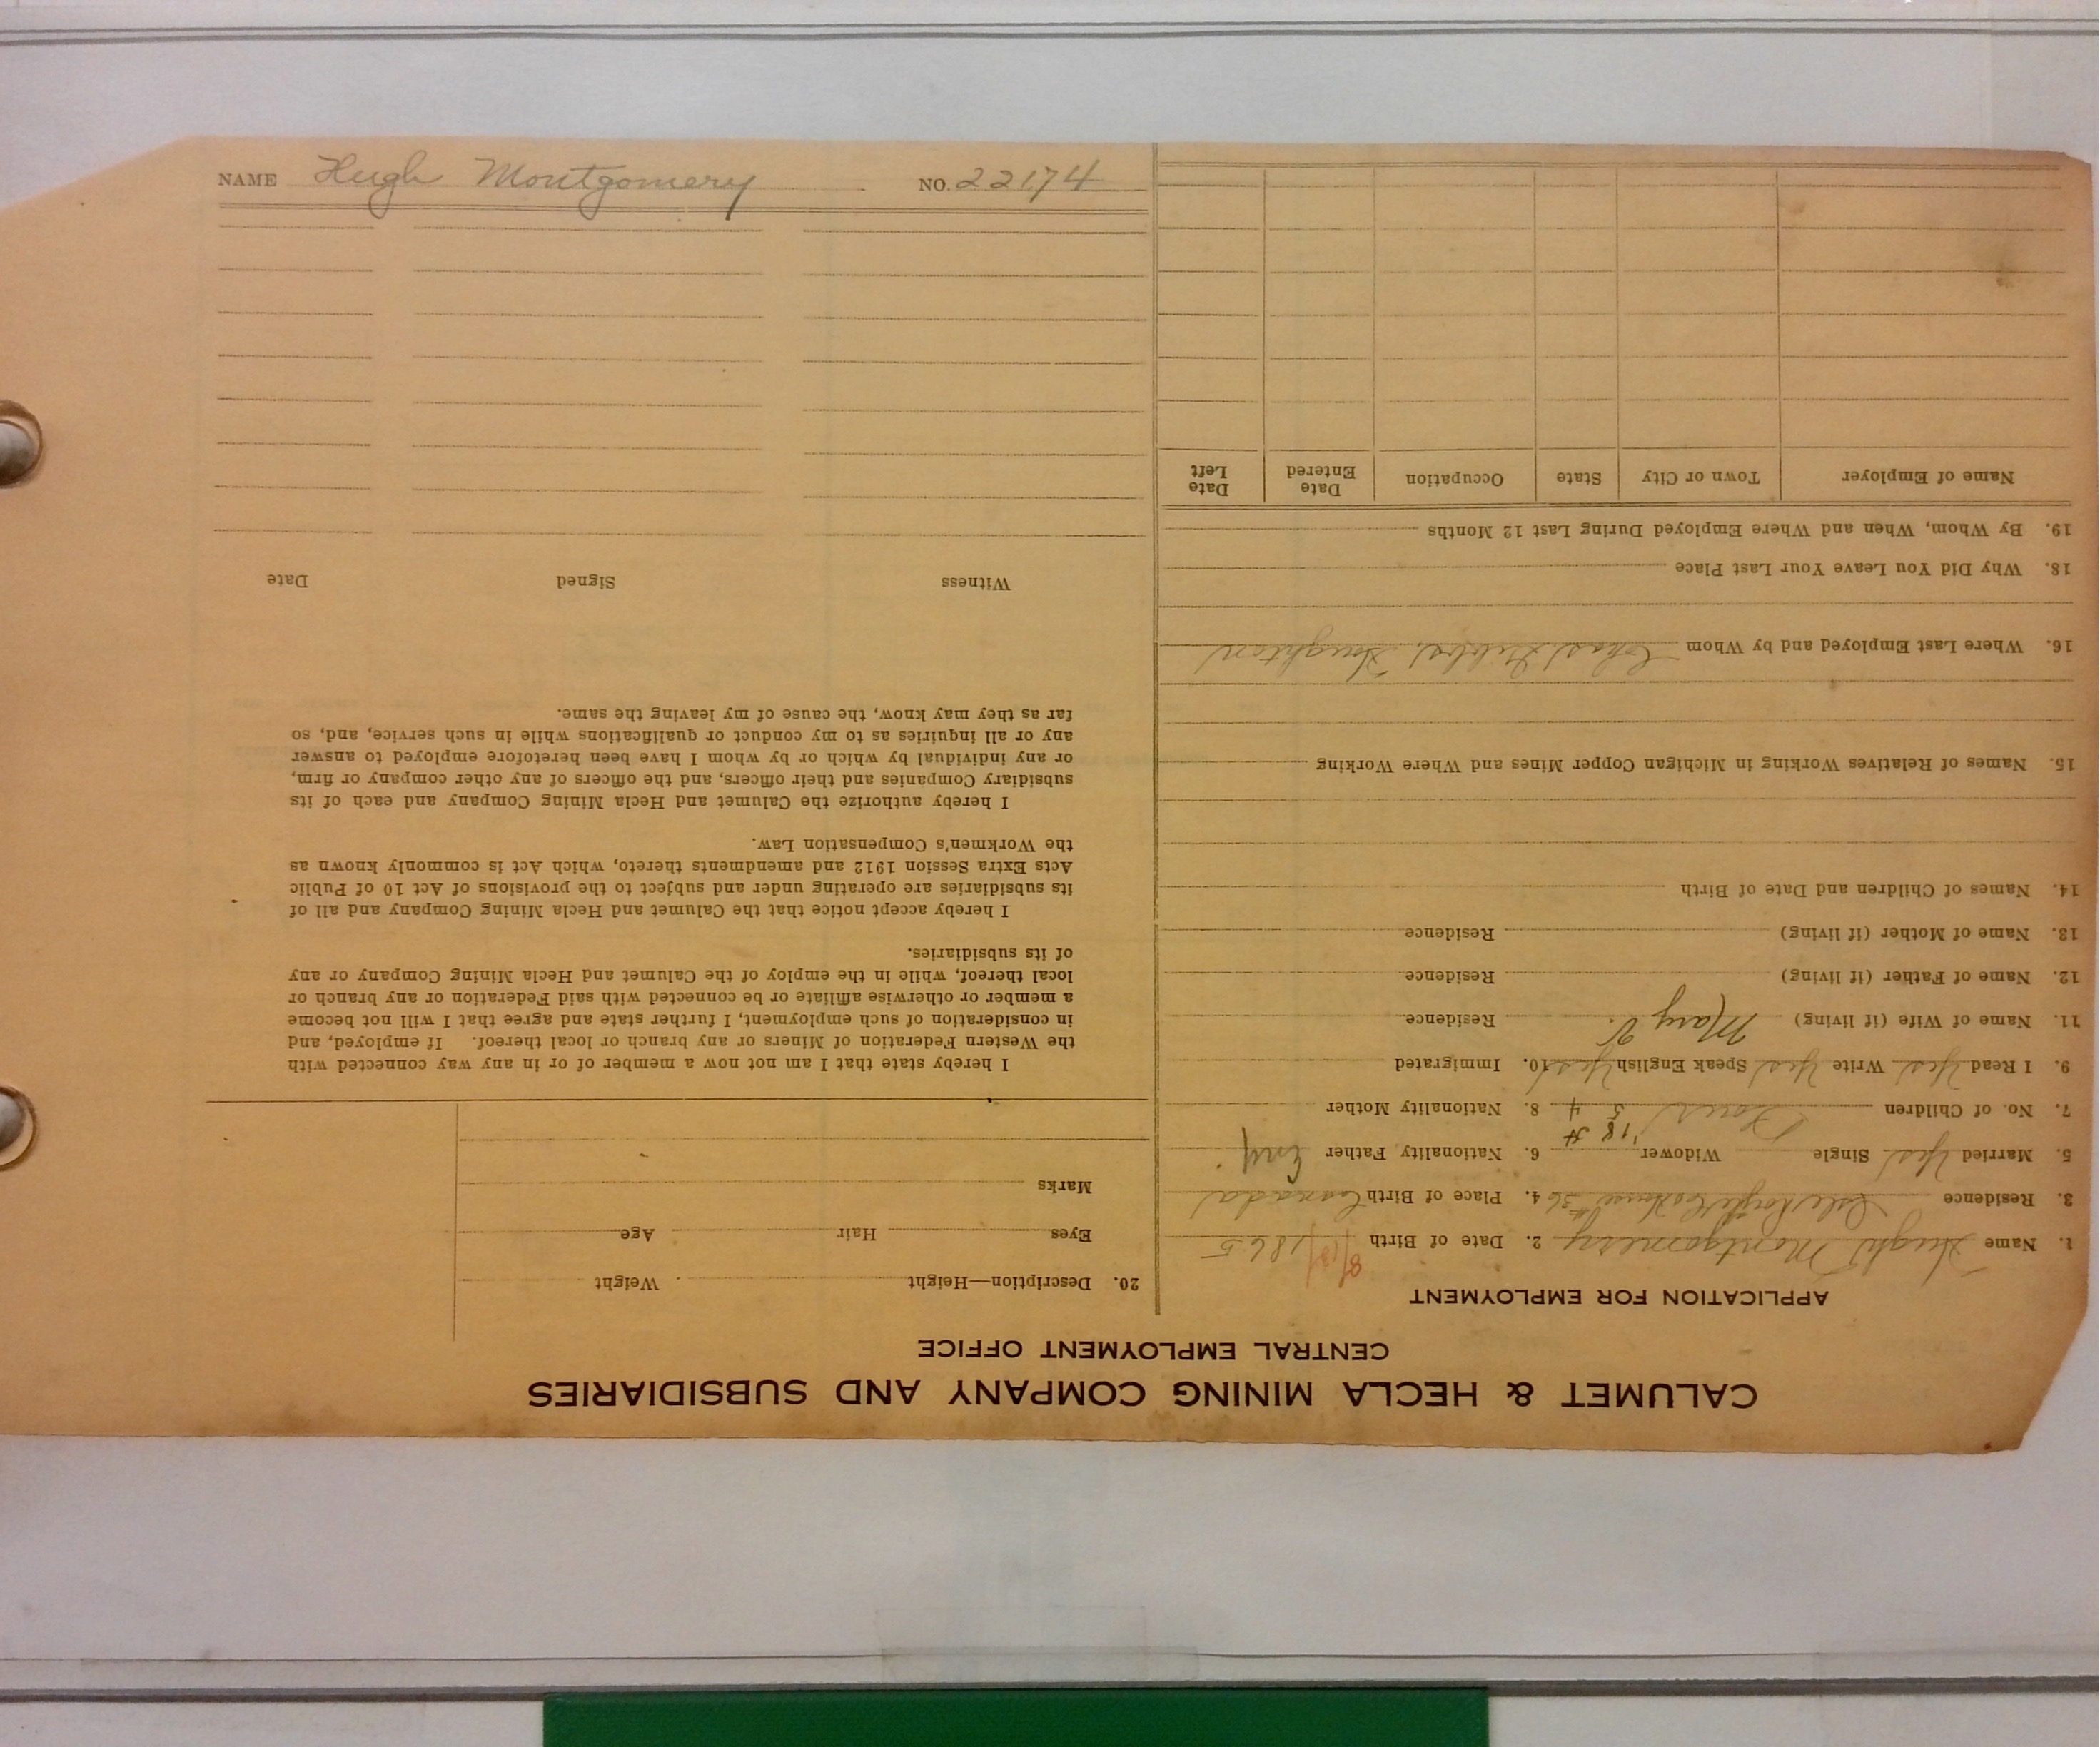 NAME Hugh Montgomery NO. 22174
CALUMET & HECLA MINING COMPANY AND SUBSIDIARIES
CENTRAL EMPLOYMENT OFFICE
APPLICATION FOR EMPLOYMENT
1. Name Hugh Montgomery 2. Date of Birth 8/13/1865
3. Residence Isle Royale Co House #36 4. Place of Birth Canada
5. Married Yes Single Widower 6. Nationality Father Eng.
7. No. of Children Four 8. Nationality Mother
9. I Read Yes Write Yes Speak English Yes 10. Immigrated
11. Name of Wife (if living) Mary Residence
12. Name of Father (if living) Residence
13. Name of Mother (if living) Residence
14. Names of Children and Date of Birth
15. Names of Relatives Working in Michigan Copper Mines and Where Working
16. Where Last Employed and by Whom Houghton
18. Why Did You Leave Your Last Place
19. By Whom, When and Where Employed During Last 12 Months
Name of Employer Town or City State Occupation Date Entered Date Left
20. Description—Height Weight
Eyes Hair Age
Marks
I hereby state that I am not now a member of or in any way connected with
the Western Federation of Miners or any branch or local thereof. If employed, and
in consideration of such employment, I further state and agree that I will not become
a member or otherwise affiliate or be connected with said Federation or any branch or
local thereof, while in the employ of the Calumet and Hecla Mining Company or any
of its subsidiaries.
I hereby accept notice that the Calumet and Hecla Mining Company and all of
its subsidiaries are operating under and subject to the provisions of Act 10 of Public
Acts Extra Session 1912 and amendments thereto, which Act is commonly known as
the Workmen's Compensation Law.
I hereby authorize the Calumet and Hecla Mining Company and each of its
subsidiary Companies and their officers, and the officers of any other company or firm,
or any individual by which or by whom I have been heretofore employed to answer
any or all inquiries as to my conduct or qualifications while in such service, and, so
far as they may know, the cause of my leaving the same.
Witness Signed Date